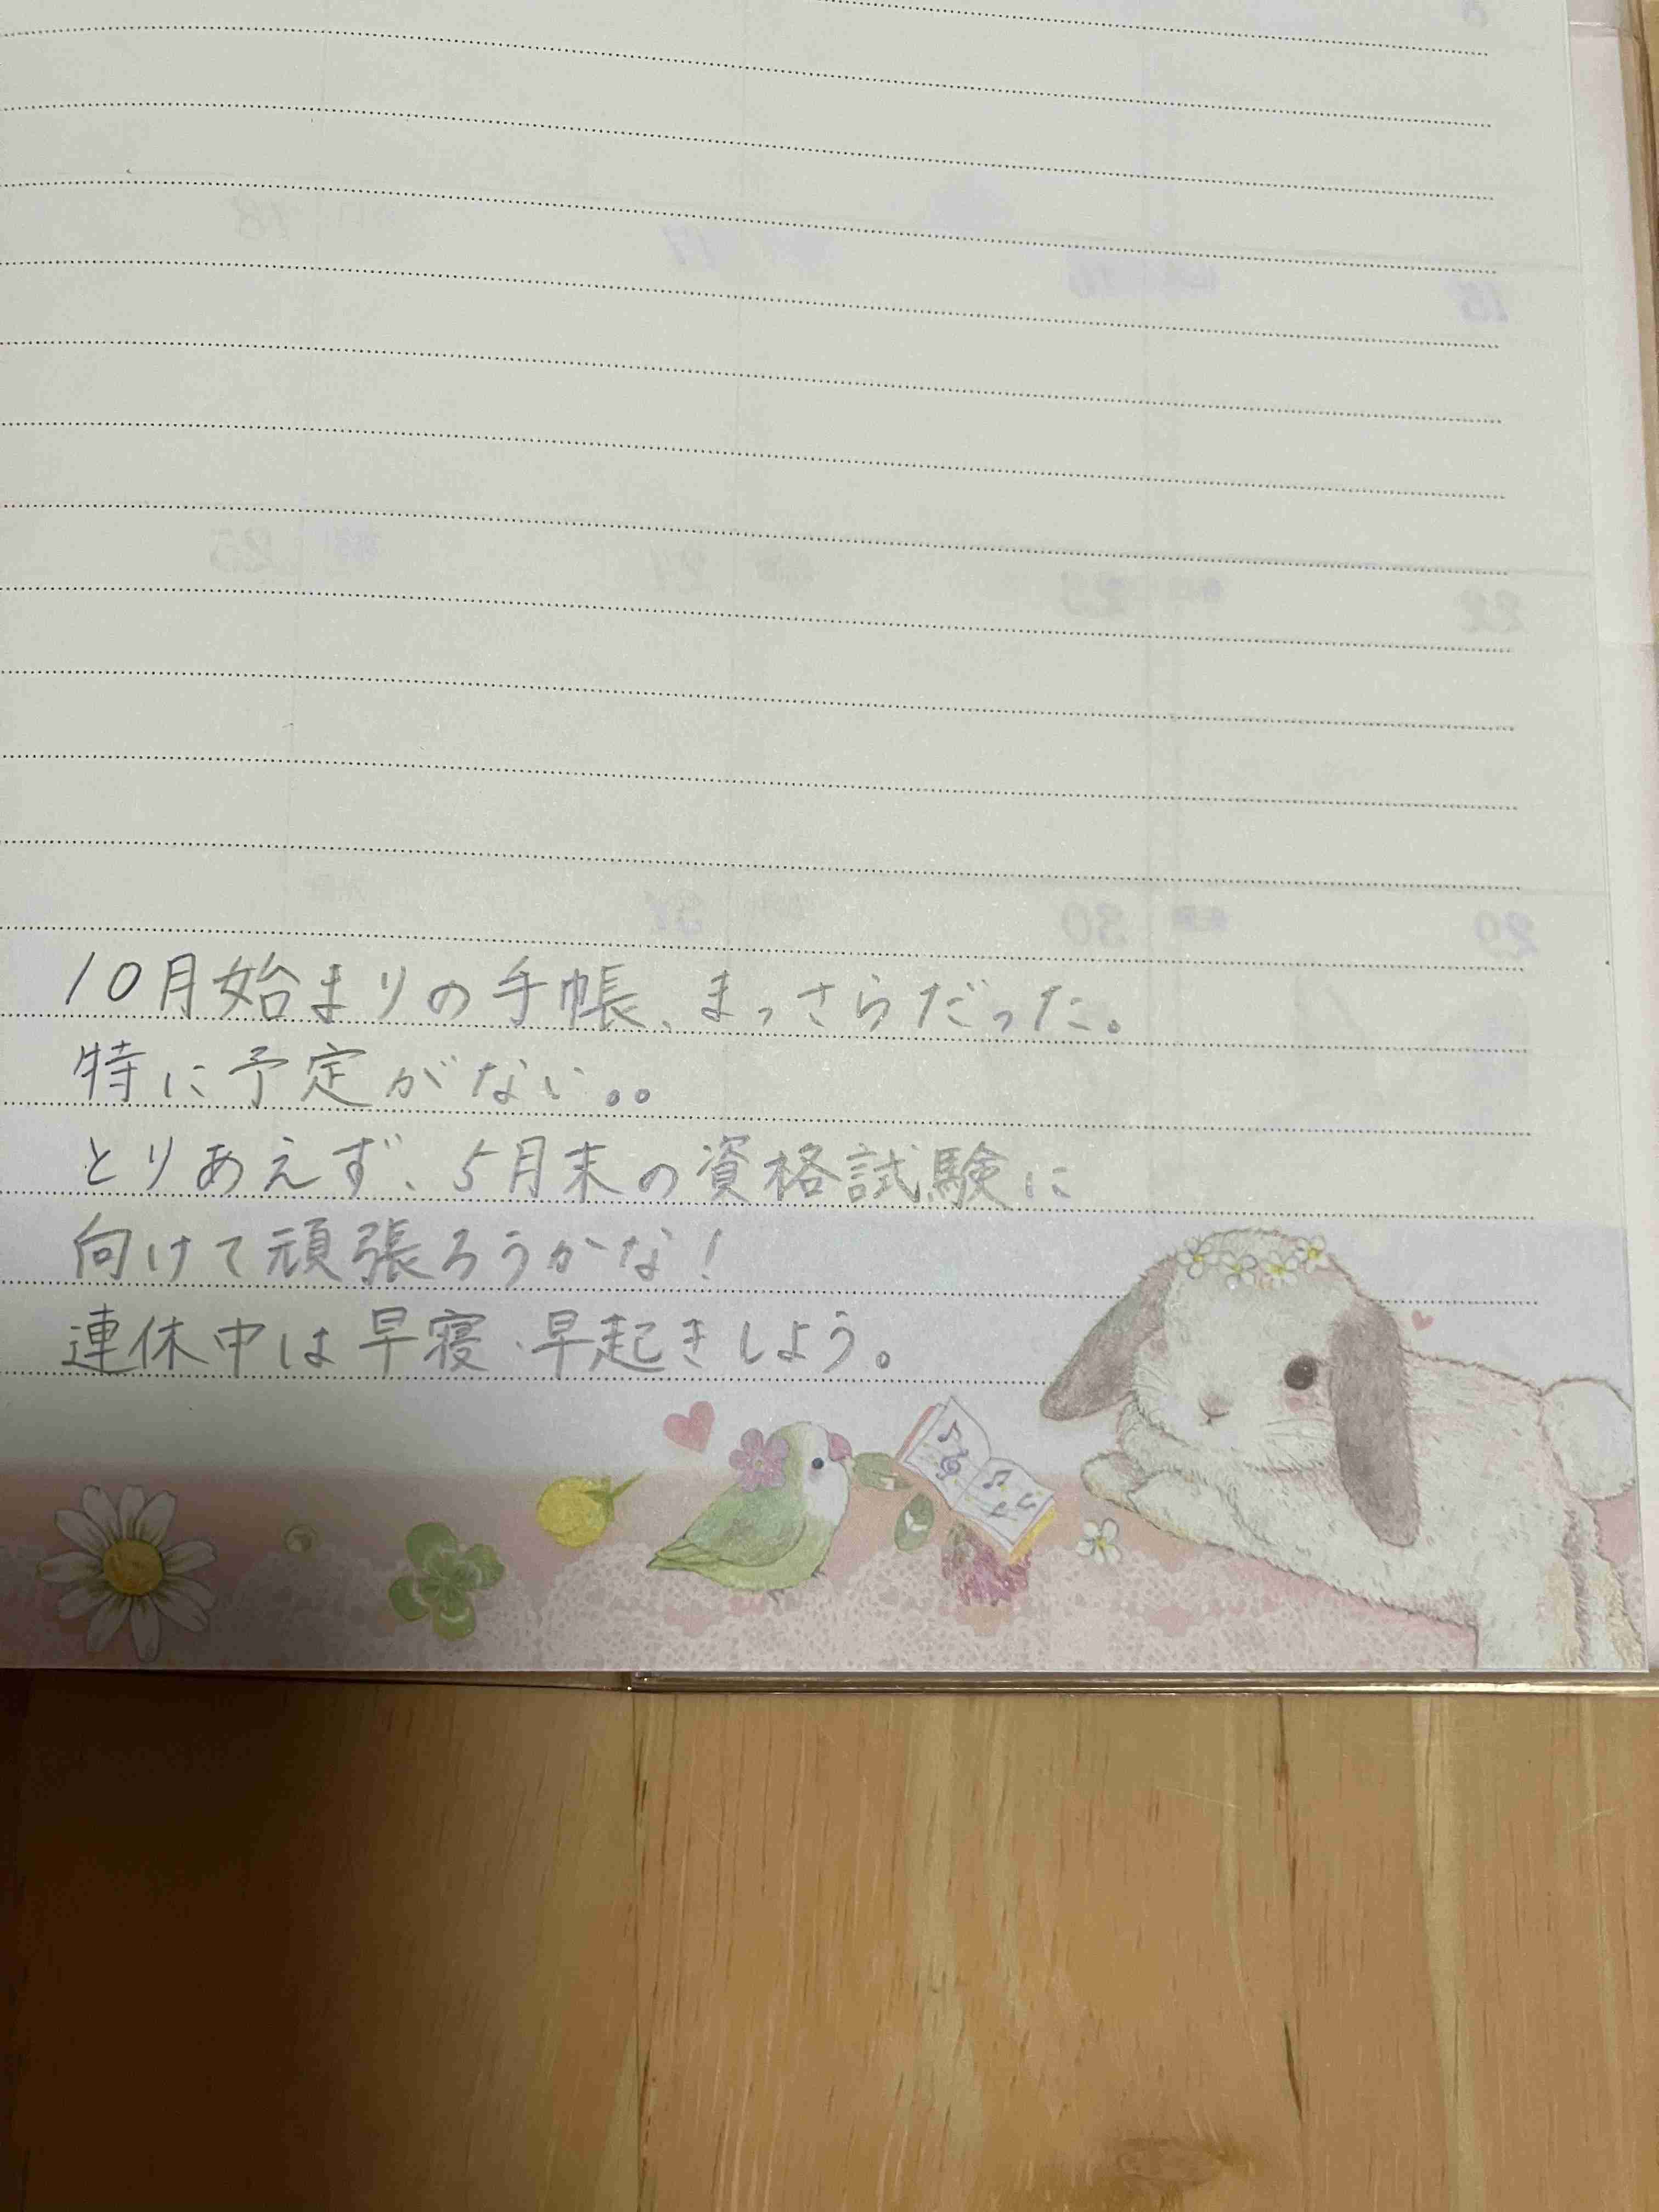 10月始まりの手帳、まっさらだった。
特に予定がない。。
とりあえず、5月末の資格試験に
向けて頑張ろうかな!
連休中は早寝、早起きしよう。